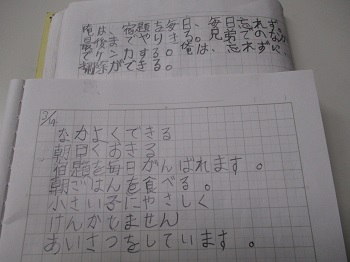 俺は、宿題を毎日、毎日忘れず
最後までやりきる。兄弟でのなか
でケンカする。俺は、忘れずに
掃除ができる。
3/14
なかよくできる
朝早くおきる
宿題を毎日がんばれます。
朝ごはんを食べる。
小さい子にやさしく
けんかもません
あいさつをしています。